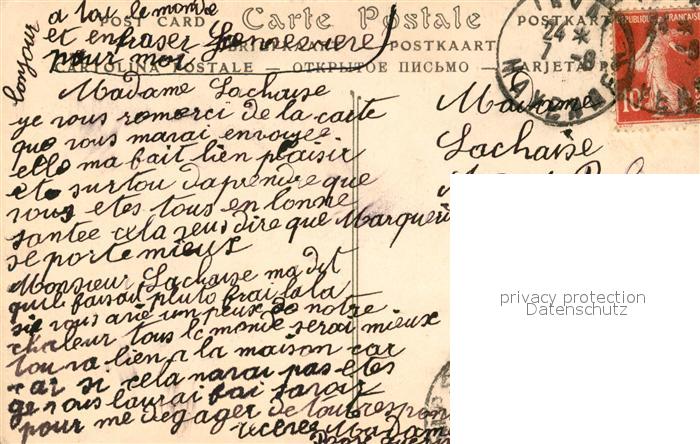 bonjour
a tou le monde
et enfraser
pour moi
POST CARD
Carte Postale
POSTKART
POSTKAART
CARTOLINA POSTALE — ОТКРЫТОЕ ПИСЬМО — TARJETA PO
24
7
RÉPUBLIQUE FRANÇAISE
10
Madame Lachaise
ge vous remerci de la carte
que vous mavai envoyee
elle ma bait bien plaisir
ete surtou daprendre que
vous etes tous en bonne
santee cela veu dire que Margueri
se porte mieux
Monsieur Lachaise ma dit
quil faisau pluto frai la la
si vous avie un peux de notre
chaleur tous le monde serai mieux
tou va bien a la maison car
car si cela navai pas etes
ge vous laurai bai savoir
pour me degager de toute respon
Madam
Madame
Lachaise
privacy protection
Datenschutz